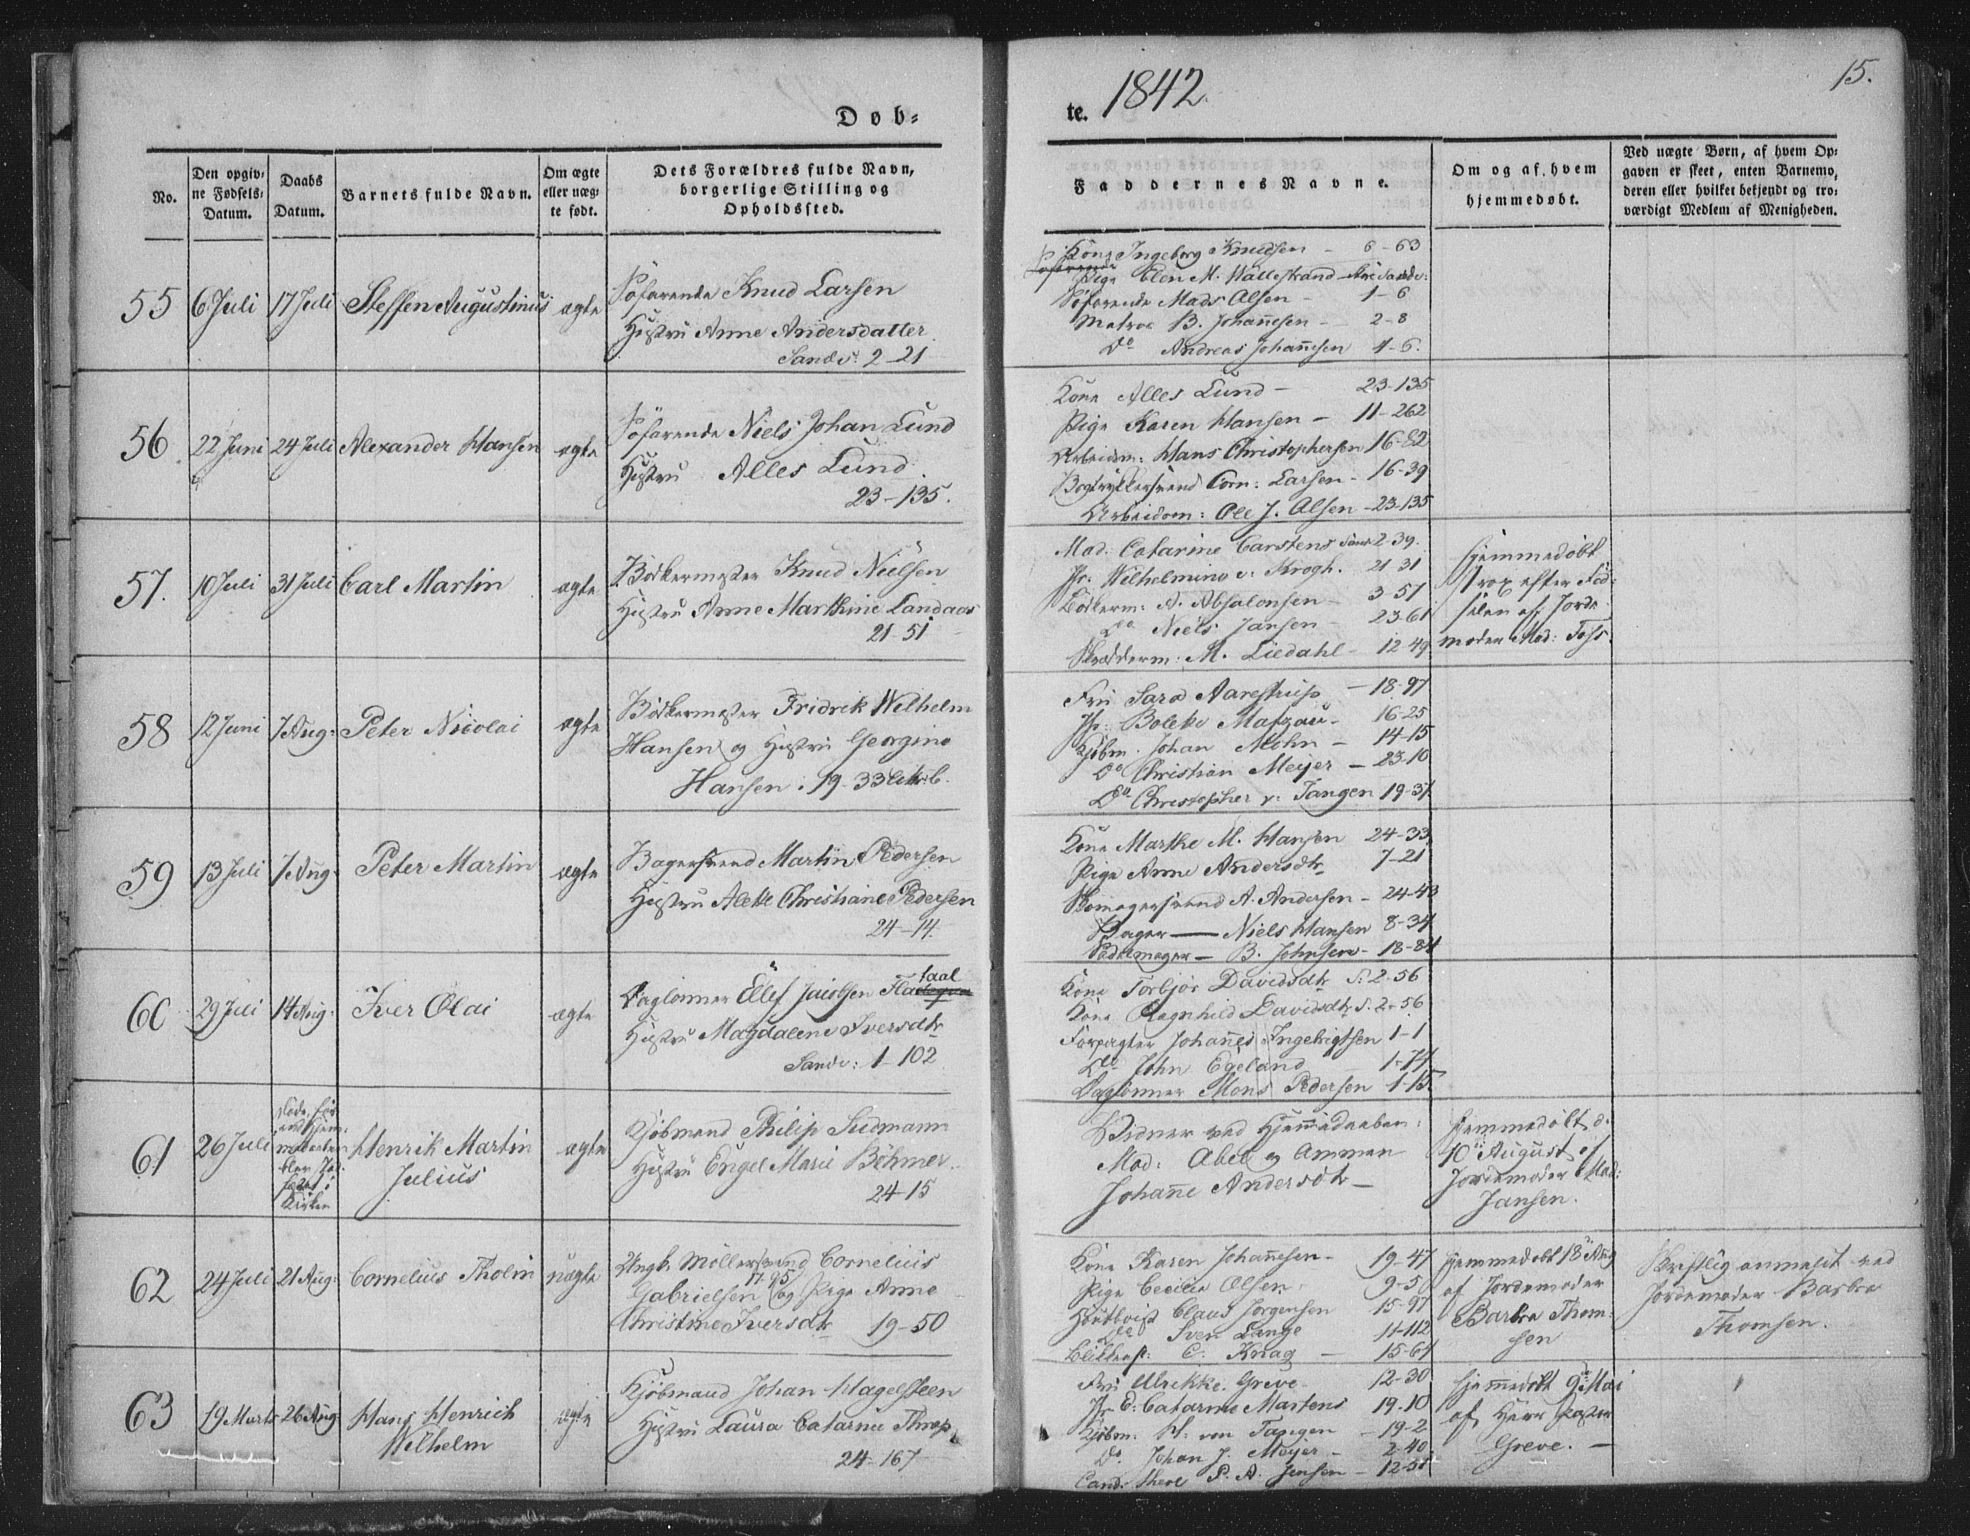 Døb=
te. 1842.
15.
No.
Den opgiv=
ne Fødsels=
Datum.
Daabs
Datum.
Barnets fulde Navn.
Om ægte
eller uæg=
te født.
Dets Forældres fulde Navn,
borgerlige Stilling og
Opholdssted.
Faddernes Navne.
Om og af hvem
hjemmedøbt.
Ved uægte Børn, af hvem Op=
gaven er skeet, enten Barnemo,
deren eller hvilket bekjendt og tro=
værdigt Medlem af Menigheden.
55
6 Juli
17 Juli
Steffen Augustinus
ægte
Søfarende Knud Larsen
Hustru Anne Andersdatter
Sandv: 2-21
Kone Ingeborg Knudsen - 6-63
Pige Elen M. Wallestrand
Søfarende Mads Olsen - 1-6
Matros B. Johannesen - 2-8
Do Andreas Johannesen 4-6.
56
22 Juni
24 Juli
Alexander Hansen
ægte
Søfarende Niels Johan Lund
Hustru Alles Lund
23-135.
Kone Alles Lund - 23-135
Pige Karen Hansen - 11-262
Arbeidsm: Hans Christophersen 16-82
Bogtrykkersvend Corn: Larsen - 16-39
Arbeidsm: Ole J. Olsen - 23-135
57.
10 Juli
31 Juli
Carl Martin
ægte
Bødkermester Knud Nielsen
Hustru Anne Marthine Landaas
21-51
Mad. Catarine Carstens Sandv 2-39.
Jfr: Wilhelmine v: Krogh. 21-31
Bødkerm: A. Absalonsen - 3-57
Do Niels Jansen - 23-61
Skrædderm: M. Liedahl - 12-49
Hjemmedøbt
strax efter Fød=
selen af Jorde
moder Mad: Foss.
58
12 Juni
7 Aug:
Peter Nicolai
ægte
Bødkermester Fridrik Wilhelm
Hansen og Hustru Georgine
Hansen: 19-33 Litr. b.
Fru Sara Aarestrup - 18-97
Jfr: Bolette Matzau - 16-25
Kjøbm. Johan Mohn - 14-15
Do Christian Meyer - 23-10
Do Christopher v: Tangen 19-37.
59
13 Juli
7 Aug:
Peter Martin
ægte
Bagersvend Martin Pedersen
Hustru Alette Christiane Pedersen
24-14.
Kone Marthe M. Hansen 24-33.
Pige Anne Andersdtr 7-21
Skomagersvend A. Andersen - 24-43
Bager — Niels Hansen 8-34
Sadelmager — B. Johnsen - 18-84
60
29 Juli
14 Aug:
Iver Olai
ægte
taal
Daglønner Ellef Jacobsen
Hustru Magdalene Iversdtr
Sandv: 1-102
Kone Torbjør Davidsdtr S: 2-56
Kone Ragnhild Davidsdtr S: 2-56
Forpagter Johannes Ingebrigtsen 1-1
Do John Egeland 1-74
Daglønner Mons Pedersen 1-15.
61
26 Juli
Døde før
end Hjem=
medaaben
blev
i
Kirken
Henrik Martin
Julius
ægte
Kjøbmand Philip Sudmann
Hustru Engel Marie Böhmer
24-15
Vidner ved Hjemmedaaben:
Mad: Abel og Ammen
Johanne Andersdtr —
Hjemmedøbt d:
10de August af
Jordemoder Mad:
Jansen.
62
24 Juli
21 Aug:
Cornelius Tholin
uægte
Ungk. Møllersvend Cornelius
Gabrielsen 17-95 og Pige Anne
Christine Iversdtr 19-50
Kone Karen Johannesen - 19-47
Pige Cecilie Olsen 9-5
Claus Jørgensen 15-97
Do Sven Lange 11-112
C. Knag — 15-64
Hjemmedøbt 18de Aug
af Jordemoder
Barbra Thom=
sen
Skriftlig anmeldt ved
Jordemoder Barbra
Thomsen.
63
19 Marts
26 Aug:
Hans Henrich
Wilhelm
ægte
Kjøbmand Johan Hagelsteen
Hustru Laura Catarine Throp
24-167
Fru Ulrikke Greve - 12-30
Jfr C: Catarine Martens 19-10
Kjøbm: H. von Tangen - 19-2
Do. Johan J. Meyer - 2-40.
Cand: theol S. A. Jensen - 12-51
Hjemmedøbt 9de Mai
af Herr Pastor
Greve. —